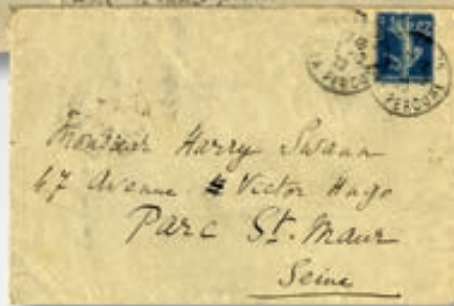 Monsieur Harry Swann
47 Avenue Victor Hugo
Parc St. Maur
Seine